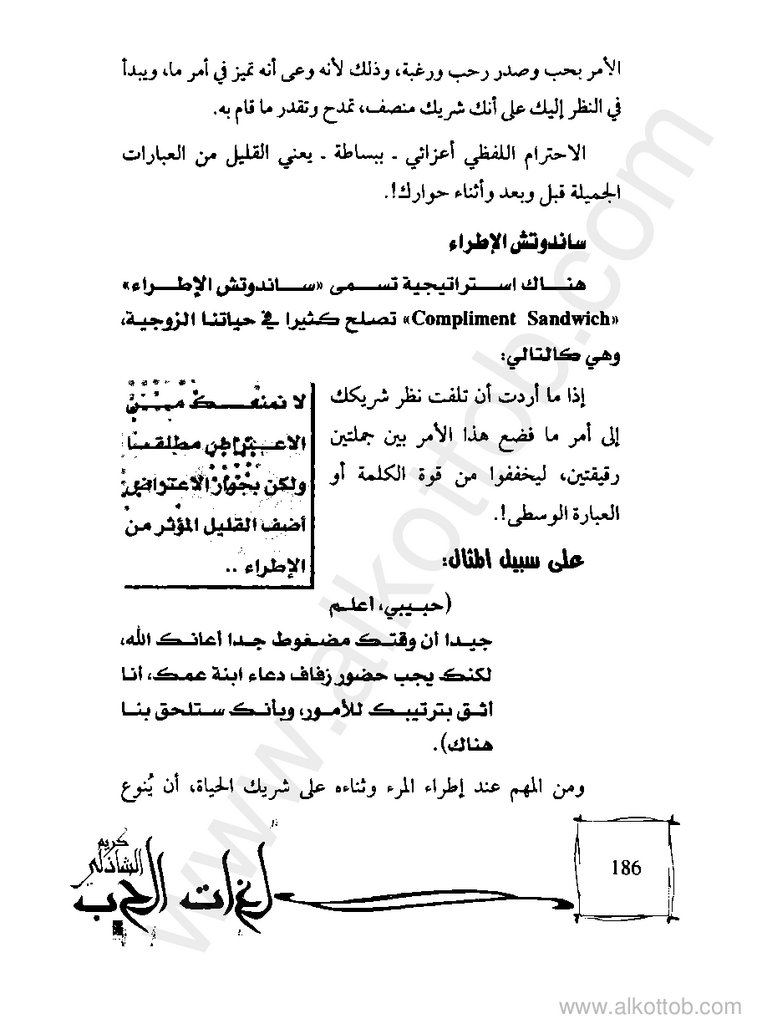 الأمر بحب وصدر رحب ورغبة، وذلك لأنه وعى أنه تميز في أمر ما، ويبدأ
في النظر إليك على أنك شريك منصف، تمدح وتقدر ما قام به.
الاحترام اللفظي أعزائي ـ ببساطة ـ يعني القليل من العبارات
الجميلة قبل وبعد وأثناء حوارك!.
ساندوتش الإطراء
هناك استراتيجية تسمى «ساندوتش الإطراء»
«Compliment Sandwich» تصلح كثيرا في حياتنا الزوجية،
وهي كالتالي:
إذا ما أردت أن تلفت نظر شريكك
إلى أمر ما فضع هذا الأمر بين جملتين
رقيقتين، ليخففوا من قوة الكلمة أو
العبارة الوسطى!.
لا نمنعك من
الاعتراض مطلقا
ولكن بجوار الاعتراض
أضف القليل المؤثر من
الإطراء ..
على سبيل المثال:
(حبيبي، أعلم
جيدا أن وقتك مضغوط جدا أعانك الله،
لكنك يجب حضور زفاف دعاء ابنة عمك، أنا
أثق بترتيبك للأمور، وبأنك ستلحق بنا
هناك).
ومن المهم عند إطراء المرء وثناءه على شريك الحياة، أن يُنوع
186
كريم
الشاذلي
لغات الحب
www.alkottob.com
www.alkottob.com